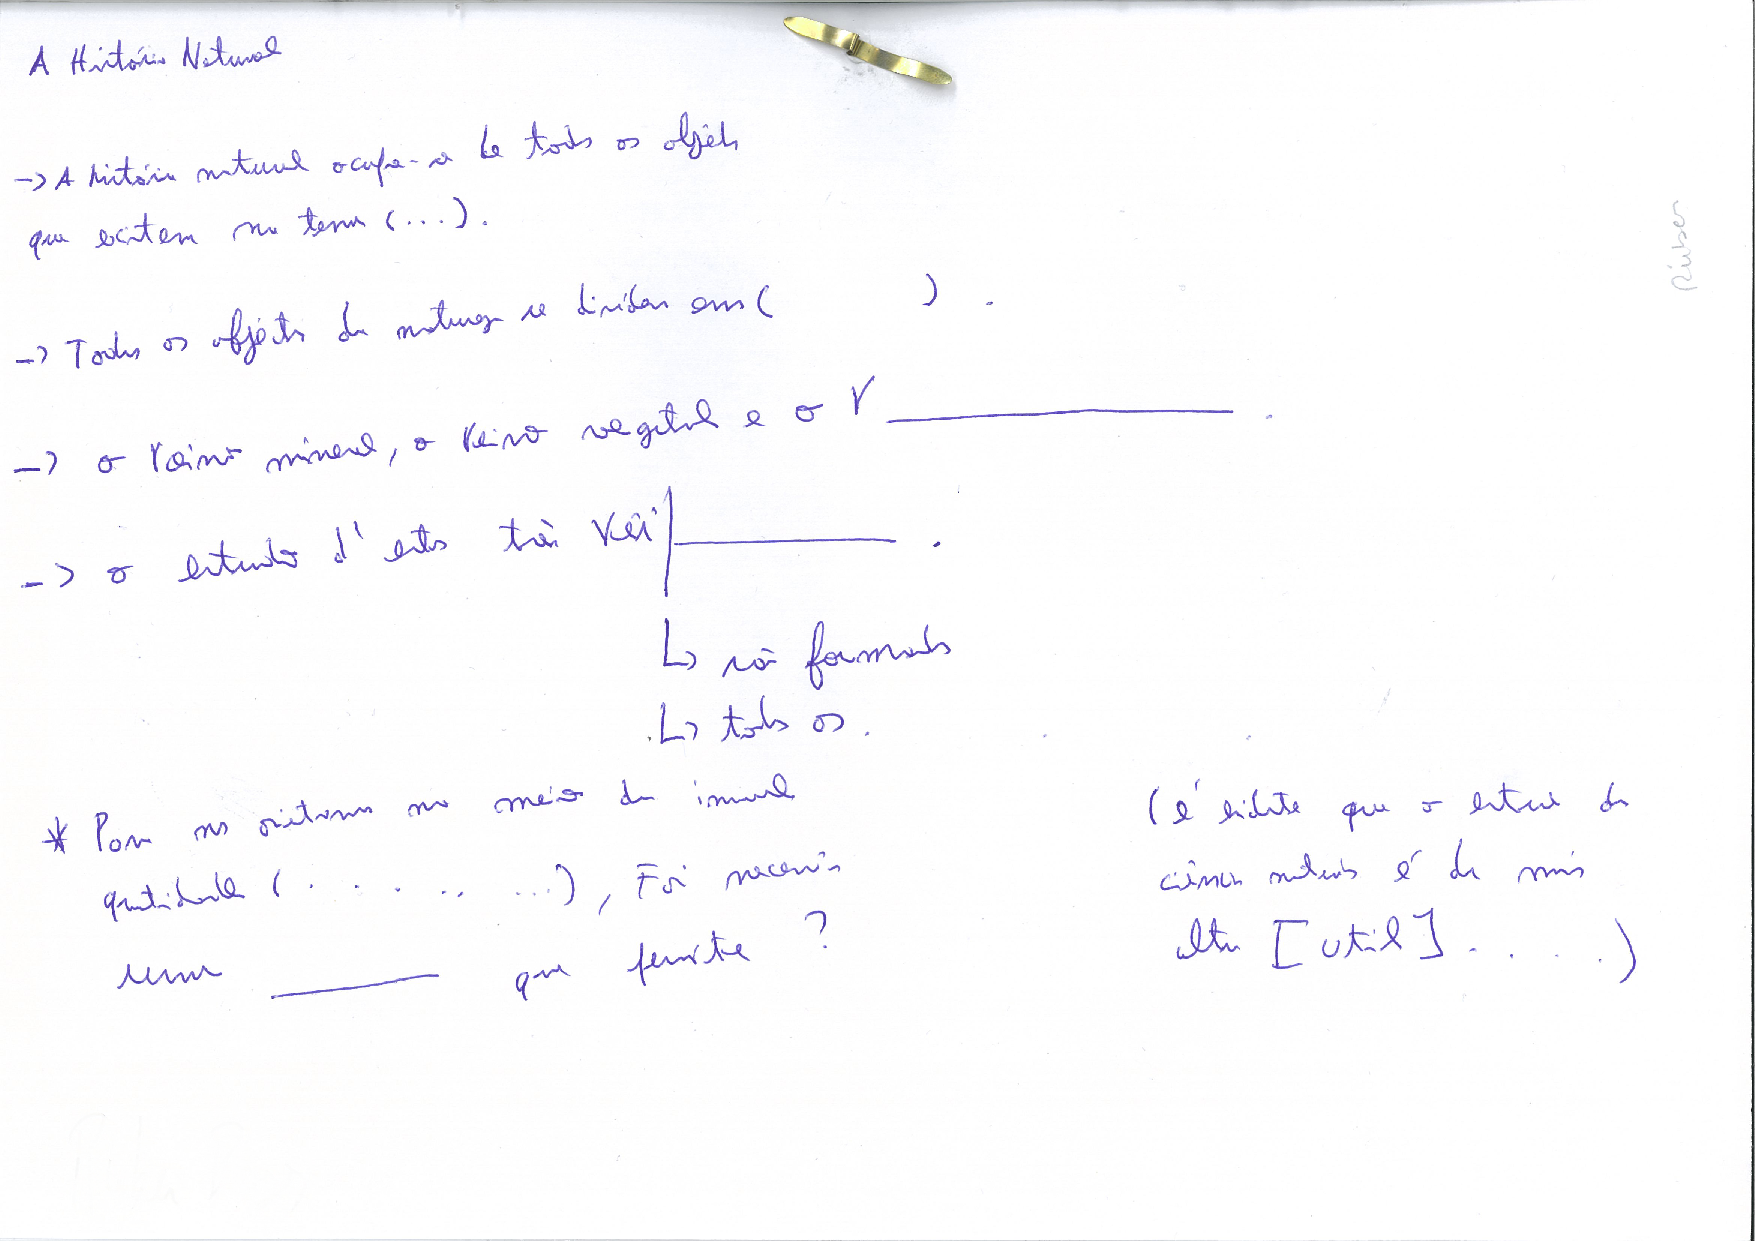 A História Natural
-> A história natural ocupa-se de todos os objéts
que existem na terra (...).
-> Todos os objéts da natureza se dividem em ( ) .
-> o reino mineral, o reino vegetal e o r ________ .
-> o estudo d'estes três rei ________ .
são formads
todos os.
* Para nos no meio da imensl
(. . . . . ...), Foi necessári
uma ________ que permite ?
(é que o estud da
é da mais
alta [util] . . . . .)